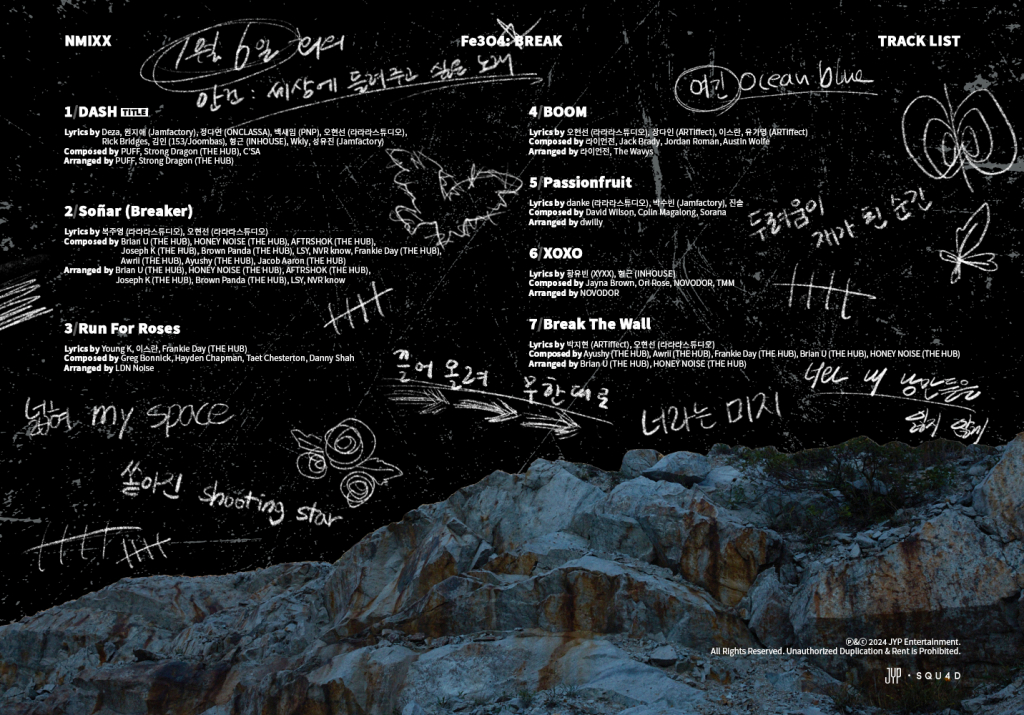 NMIXX
Fe3O4: BREAK
TRACK LIST
1월 6일 회의
안건 : 세상에 들려주고 싶은 노래
여긴 ocean blue
1/DASH TITLE
Lyrics by Deza, 원지애 (Jamfactory), 정다연 (ONCLASSA), 백새임 (PNP), 오현선 (라라라스튜디오),
Rick Bridges, 김인 (153/Joombas), 형근 (INHOUSE), Wkly, 성유진 (Jamfactory)
Composed by PUFF, Strong Dragon (THE HUB), C'SA
Arranged by PUFF, Strong Dragon (THE HUB)
2/Soñar (Breaker)
Lyrics by 복주영 (라라라스튜디오), 오현선 (라라라스튜디오)
Composed by Brian U (THE HUB), HONEY NOISE (THE HUB), AFTRSHOK (THE HUB),
Joseph K (THE HUB), Brown Panda (THE HUB), LSY, NVR know, Frankie Day (THE HUB),
Awrii (THE HUB), Ayushy (THE HUB), Jacob Aaron (THE HUB)
Arranged by Brian U (THE HUB), HONEY NOISE (THE HUB), AFTRSHOK (THE HUB),
Joseph K (THE HUB), Brown Panda (THE HUB), LSY, NVR know
3/Run For Roses
Lyrics by Young K, 이스란, Frankie Day (THE HUB)
Composed by Greg Bonnick, Hayden Chapman, Taet Chesterton, Danny Shah
Arranged by LDN Noise
4/BOOM
Lyrics by 오현선 (라라라스튜디오), 장다인 (ARTiffect), 이스란, 유가영 (ARTiffect)
Composed by 라이언전, Jack Brady, Jordan Roman, Austin Wolfe
Arranged by 라이언전, The Wavys
5/Passionfruit
Lyrics by danke (라라라스튜디오), 박수빈 (Jamfactory), 진솔
Composed by David Wilson, Colin Magalong, Sorana
Arranged by dwilly
두려움이
재가 된 순간
6/XOXO
Lyrics by 황유빈 (XYXX), 형근 (INHOUSE)
Composed by Jayna Brown, Ori Rose, NOVODOR, TMM
Arranged by NOVODOR
7/Break The Wall
Lyrics by 박지현 (ARTiffect), 오현선 (라라라스튜디오)
Composed by Ayushy (THE HUB), Awrii (THE HUB), Frankie Day (THE HUB), Brian U (THE HUB), HONEY NOISE (THE HUB)
Arranged by Brian U (THE HUB), HONEY NOISE (THE HUB)
끌어 올려
무한대로
너와 내 낭만들을
쉽지 않지
너라는 미지
넓혀 my space
쏟아진 shooting star
Ⓟ&ⓒ 2024 JYP Entertainment.
All Rights Reserved. Unauthorized Duplication & Rent is Prohibited.
JYP · SQU4D